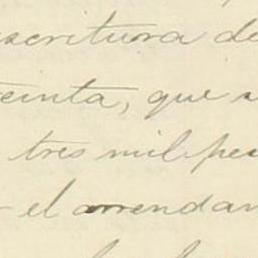 escritura de
reinta, que s
tres mil pes
el arrendan